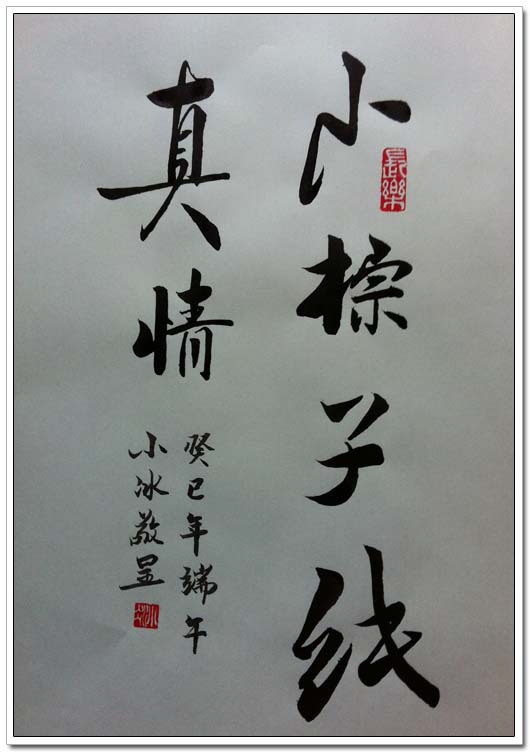 小棕子线
長樂
真情
癸巳年端午
小冰敬呈